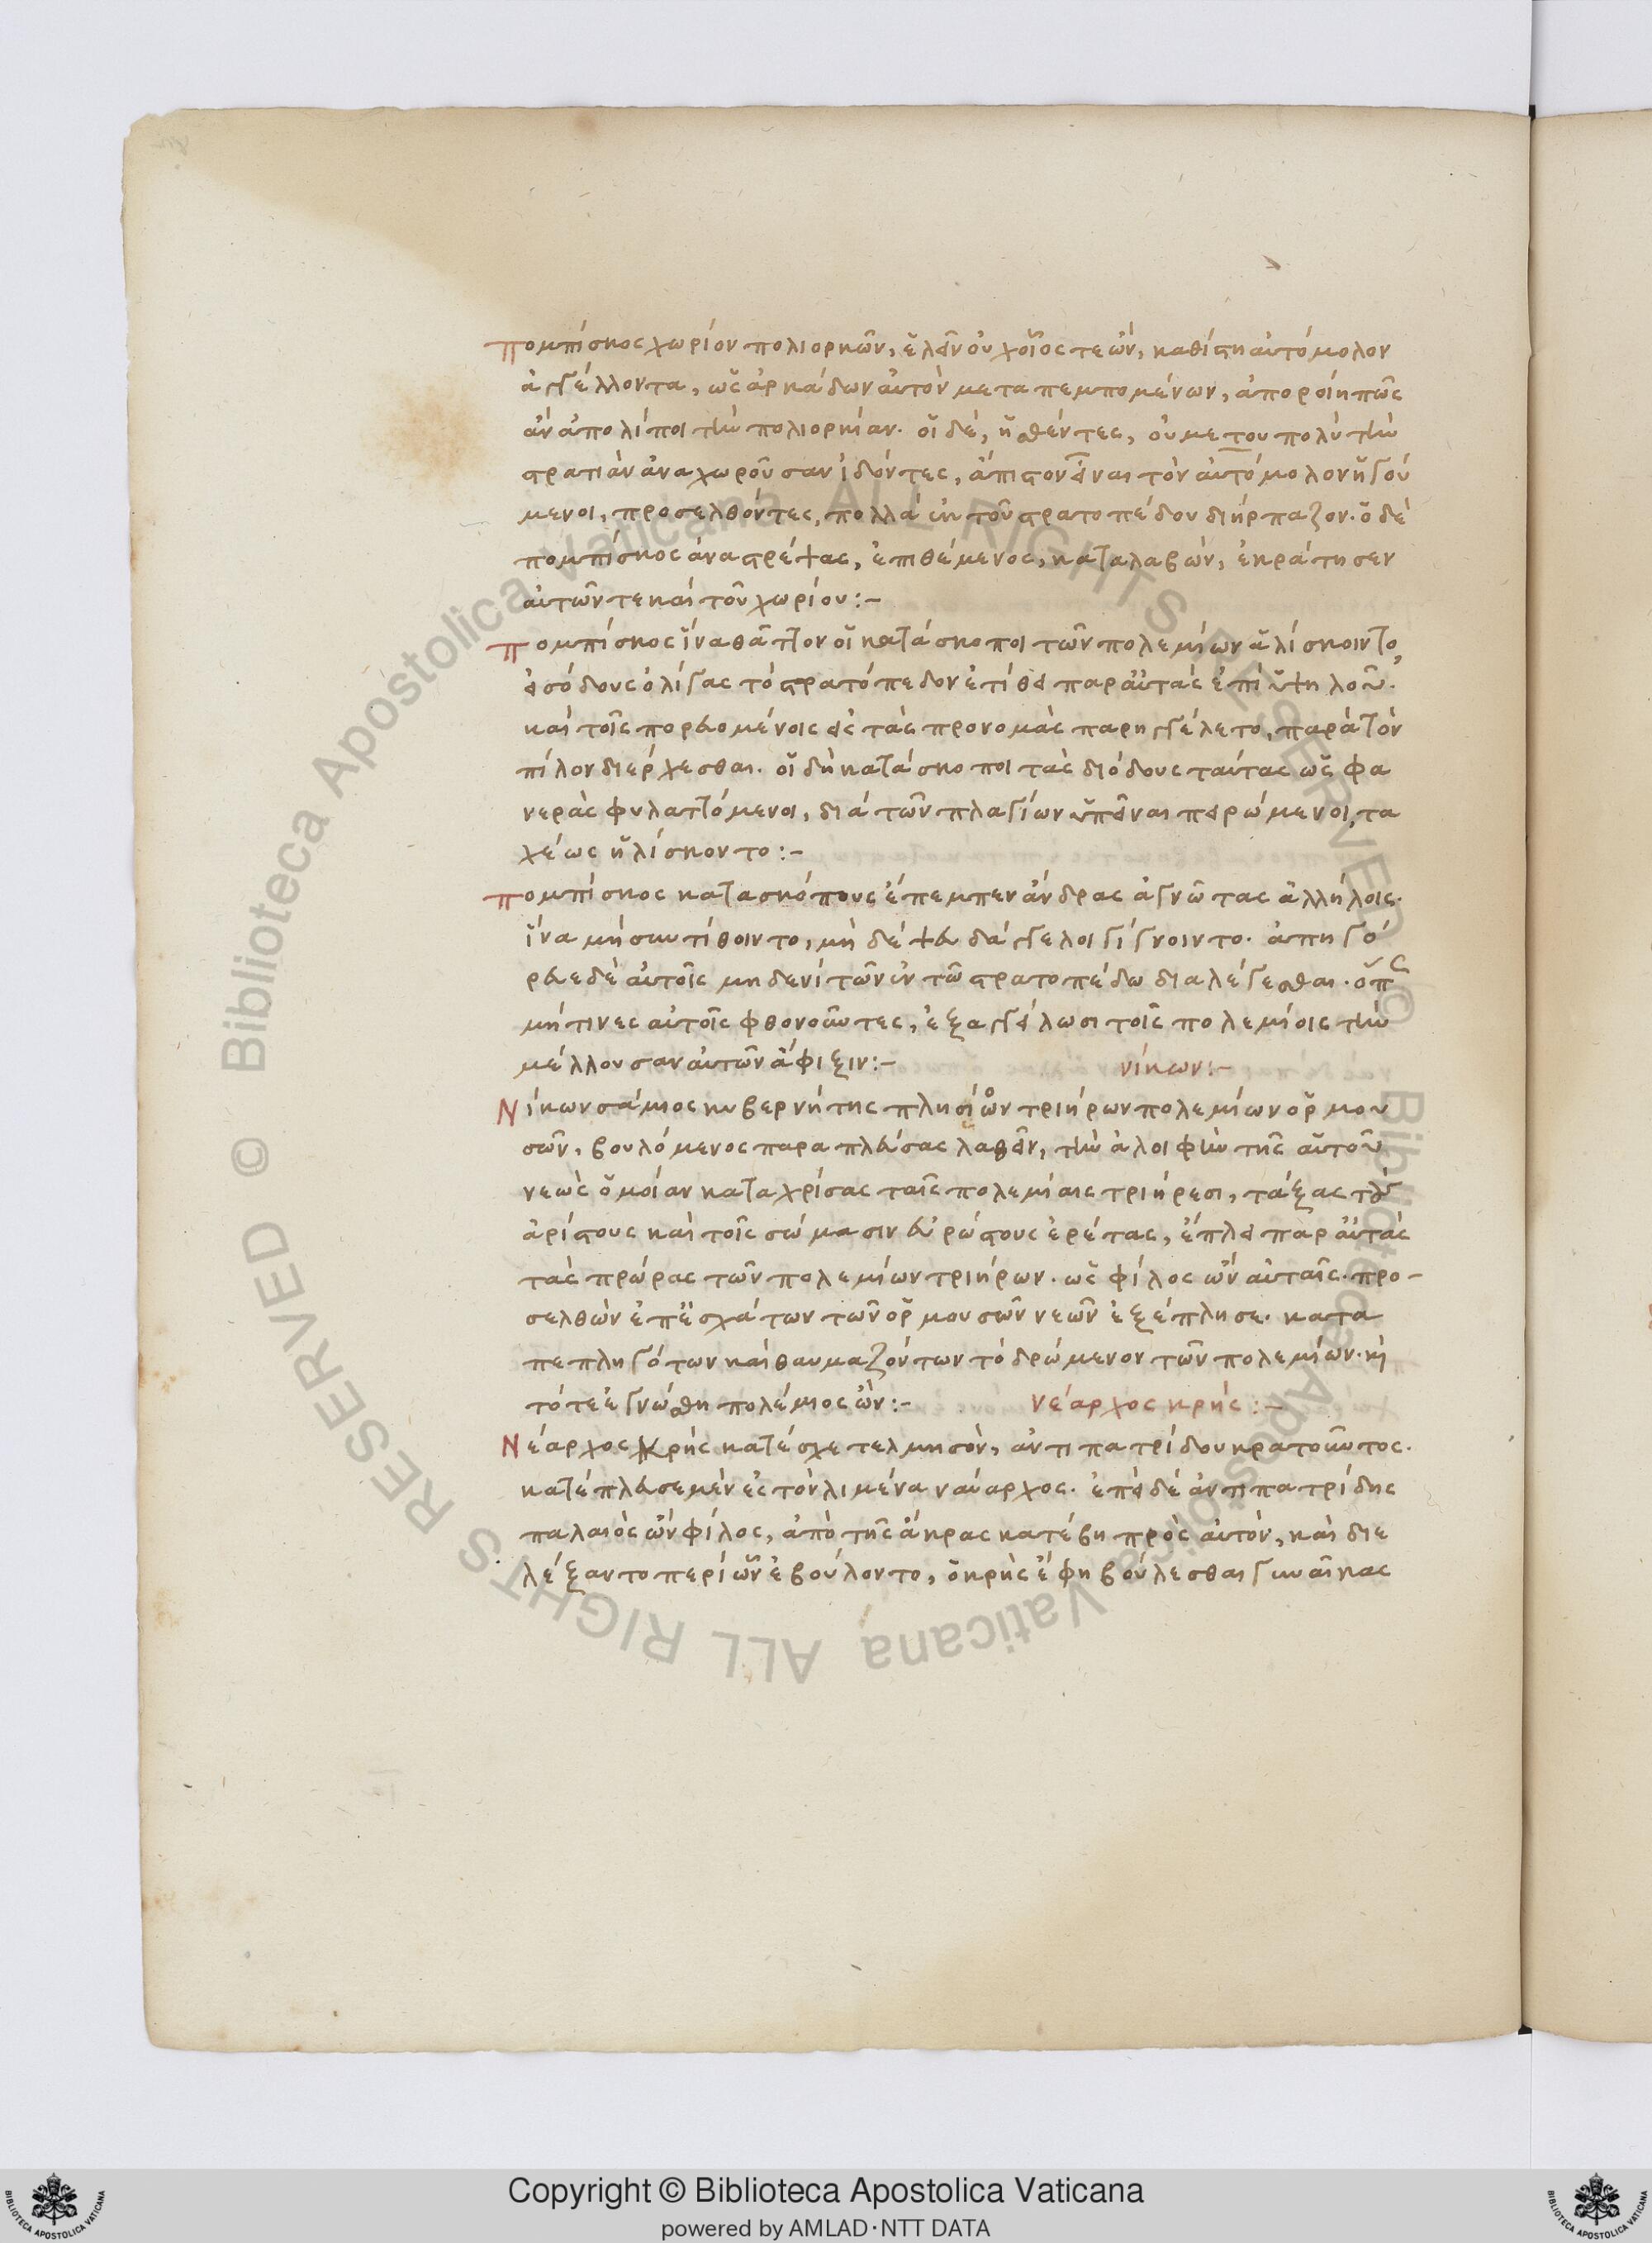 Πομπίσκος χωρίον πολιορκῶν, ἑλεῖν οὐχ οἷός τε ὢν, καθίστη αὐτόμολον
ἀγγέλλοντα, ὡς ἀρκάδων αὐτὸν μεταπεμπομένων, ἀποροίη πῶς
ἂν ἀπολίποι τὴν πολιορκίαν. οἱ δὲ, ἡσθέντες, οὐ μετουπολὺ τὴν
στρατιὰν ἀναχωροῦσαν ἰδόντες, ἄπιστον εἶναι τὸν αὐτόμολον ἡγού
μενοι, προσελθόντες, πολλὰ ἐκ τοῦ στρατοπέδου διήρπαζον. ὁ δὲ
πομπίσκος ἀναστρέψας, ἐπιθέμενος, καταλαβὼν, ἐκράτησεν
αὐτῶν τε καὶ τοῦ χωρίου:-
Πομπίσκος ἵνα θᾶττον οἱ κατάσκοποι τῶν πολεμίων ἁλίσκοιντο,
εἰσόδους ὀλίγας τὸ στρατόπεδον ἐτίθει παρ αὐτὰς ἐπὶ ὑψηλοῦ.
καὶ τοῖς πορευομένοις εἰς τὰς προνομὰς παρηγγέλετο, παρὰ τὸν
πίλον διέρχεσθαι. οἱ δὴ κατάσκοποι τὰς διόδους ταύτας ὡς φα
νερὰς φυλαττόμενοι, διὰ τῶν πλαγίων ὑπεῖναι πειρώμενοι, τα
χέως ἡλίσκοντο:-
Πομπίσκος κατασκόπους ἔπεμπεν ἄνδρας ἀγνῶτας ἀλλήλοις.
ἵνα μὴ συντίθοιντο, μὴ δὲ ψευδάγγελοι γίγνοιντο. ἀπηγό
ρευε δὲ αὐτοῖς μηδενὶ τῶν ἐν τῶ στρατοπέδω διαλέγεσθαι. ὅπως
μή τινες αὐτοῖς φθονοῦντες, ἐξαγγείλωσι τοῖς πολεμίοις τὴν
μέλλουσαν αὐτῶν ἄφιξιν:- νίκων:-
Νίκων σάμιος κυβερνήτης πλησίον τριήρων πολεμίων ὁρμου
σῶν, βουλόμενος παραπλεύσας λαθεῖν, τὴν ἀλοιφὴν τῆς αὑτοῦ
νεὼς ὁμοίαν καταχρίσας ταῖς πολεμίαις τριήρεσι, τάξας τοὺς
ἀρίστους καὶ τοῖς σώμασιν εὐρώστους ἐρέτας, ἔπλει παρ αὐτὰς
τὰς πρώρας τῶν πολεμίων τριήρων. ὡς φίλος ὢν αὐταῖς. προ-
σελθὼν ἐπ ἐσχάτων τῶν ὁρμουσῶν νεῶν ἐξέπλησε. κατα
πεπληγότων καὶ θαυμαζόντων τὸ δρώμενον τῶν πολεμίων. καὶ
τότε ἐγνώσθη πολέμιος ὤν:- νέαρχος κρής:-
Νέαρχος κρὴς κατέσχε τελμησὸν, ἀντιπατρίδου κρατοῦντος.
κατέπλευσε μὲν ἐς τὸν λιμένα ναύαρχος. ἐπεὶ δὲ ἀντιπατρίδης
παλαιὸς ὢν φίλος, ἀπὸ τῆς ἄκρας κατέβη πρὸς αὐτὸν, καὶ διε
λέξαντο περὶ ὧν ἐβούλοντο, ὁ κρὴς ἔφη βούλεσθαι γυναῖκας
© Biblioteca Apostolica Vaticana ALL RIGHTS RESERVED © Biblioteca Apostolica Vaticana ALL RIGHTS RESERVED
Copyright © Biblioteca Apostolica Vaticana
powered by AMLAD·NTT DATA
BIBLIOTECA APOSTOLICA VATICANA
BIBLIOTECA APOSTOLICA VATICANA